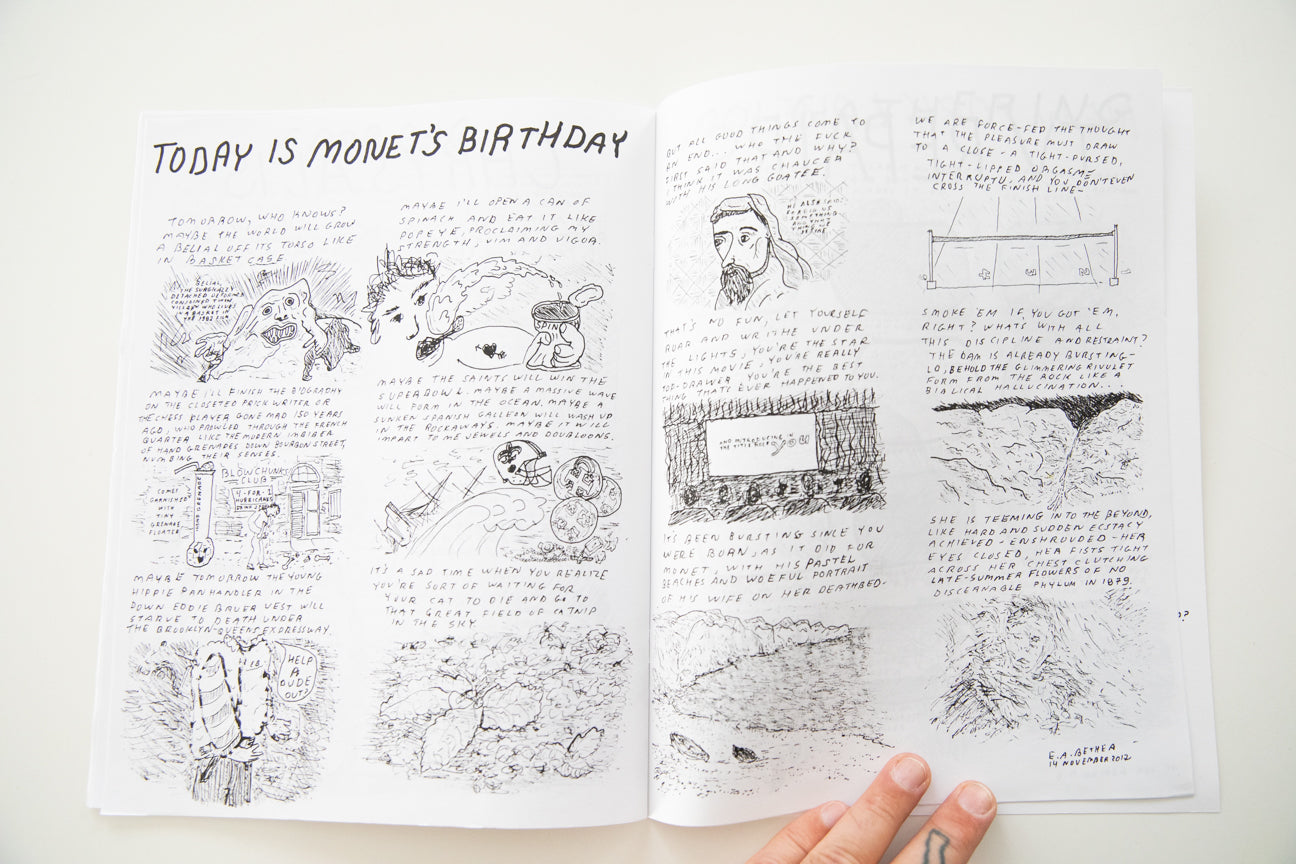 TODAY IS MONET'S BIRTHDAY
TOMORROW, WHO KNOWS?
MAYBE THE WORLD WILL GROW
A BELIAL OFF ITS TORSO LIKE
IN BASKET CASE
BELIAL,
THE SURGICALLY
DETACHED DEFORMED
CONJOINED TWIN
VILLAIN WHO LIVES
IN A BASKET IN
THE 1982 FILM
MAYBE I'LL FINISH THE BIOGRAPHY
ON THE CLOSETED PRICK WRITER OR
THE CHESS PLAYER GONE MAD 150 YEARS
AGO, WHO PROWLED THROUGH THE FRENCH
QUARTER LIKE THE MODERN IMBIBER
OF HAND GRENADES DOWN BOURBON STREET,
NUMBING THEIR SENSES.
COMES
GARNISHED
WITH
TINY
GRENADE
FLOATER
HAND GRENADE
BLOWCHUNKS
CLUB
4-FOR-1
HURRICANES
MAYBE TOMORROW THE YOUNG
HIPPIE PANHANDLER IN THE
DOWN EDDIE BAUER VEST WILL
STARVE TO DEATH UNDER
THE BROOKLYN-QUEENS EXPRESSWAY.
HELP
A
DUDE
OUT?
MAYBE I'LL OPEN A CAN OF
SPINACH AND EAT IT LIKE
POPEYE, PROCLAIMING MY
STRENGTH, VIM AND VIGOR.
SPIN
MAYBE THE SAINTS WILL WIN THE
SUPERBOWL. MAYBE A MASSIVE WAVE
WILL FORM IN THE OCEAN. MAYBE A
SUNKEN SPANISH GALLEON WILL WASH UP
IN THE ROCKAWAYS. MAYBE IT WILL
IMPART TO ME JEWELS AND DOUBLOONS.
IT'S A SAD TIME WHEN YOU REALIZE
YOU'RE SORT OF WAITING FOR
YOUR CAT TO DIE AND GO TO
THAT GREAT FIELD OF CATNIP
IN THE SKY.
BUT ALL GOOD THINGS COME TO
AN END... WHO THE FUCK
FIRST SAID THAT AND WHY?
I THINK IT WAS CHAUCER
WITH HIS LONG GOATEE.
HE ALSO
SOMETHING
AND THAT
THAT'S NO FUN, LET YOURSELF
ROAR AND WRITHE UNDER
THE LIGHTS, YOU'RE THE STAR
OF THIS MOVIE. YOU'RE REALLY
TOP-DRAWER. YOU'RE THE BEST
THING THAT'S EVER HAPPENED TO YOU.
AND INTRODUCING IN
THE TITLE ROLE
IT'S BEEN BURSTING SINCE YOU
WERE BORN, AS IT DID FOR
MONET, WITH HIS PASTEL
BEACHES AND WOEFUL PORTRAIT
OF HIS WIFE ON HER DEATHBED-
WE ARE FORCE-FED THE THOUGHT
THAT THE PLEASURE MUST DRAW
TO A CLOSE - A TIGHT-PURSED,
TIGHT-LIPPED ORGASM-
INTERRUPTU, AND YOU DON'T EVEN
CROSS THE FINISH LINE-
SMOKE 'EM IF YOU GOT 'EM,
RIGHT? WHATS WITH ALL
THIS DISCIPLINE AND RESTRAINT?
THE DAM IS ALREADY BURSTING-
LO, BEHOLD THE GLIMMERING RIVULET
FORM FROM THE ROCK LIKE A
BIBLICAL HALLUCINATION...
SHE IS TEEMING INTO THE BEYOND,
LIKE HARD AND SUDDEN ECSTACY
ACHIEVED - ENSHROUDED - HER
EYES CLOSED, HER FISTS TIGHT
ACROSS HER CHEST CLUTCHING
LATE-SUMMER FLOWERS OF NO
DISCERNABLE PHYLUM IN 1879.
E.A. BETHEA
14 NOVEMBER 2012